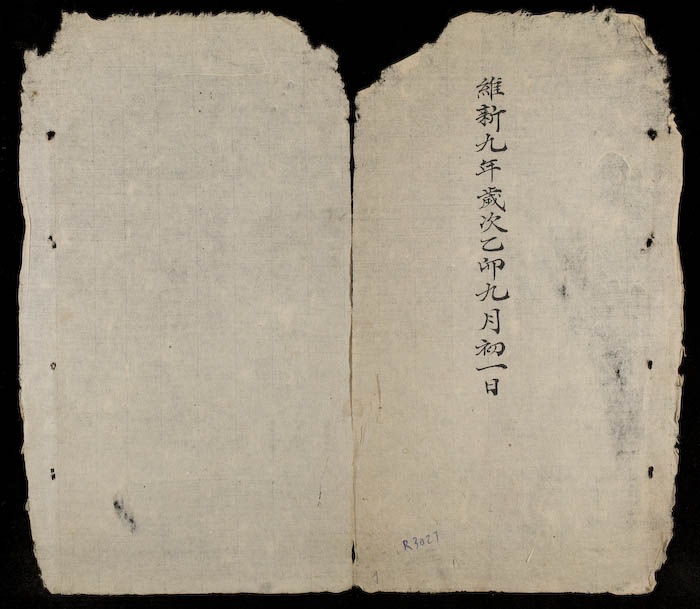 維新九年歲次乙卯九月初一日
R3027